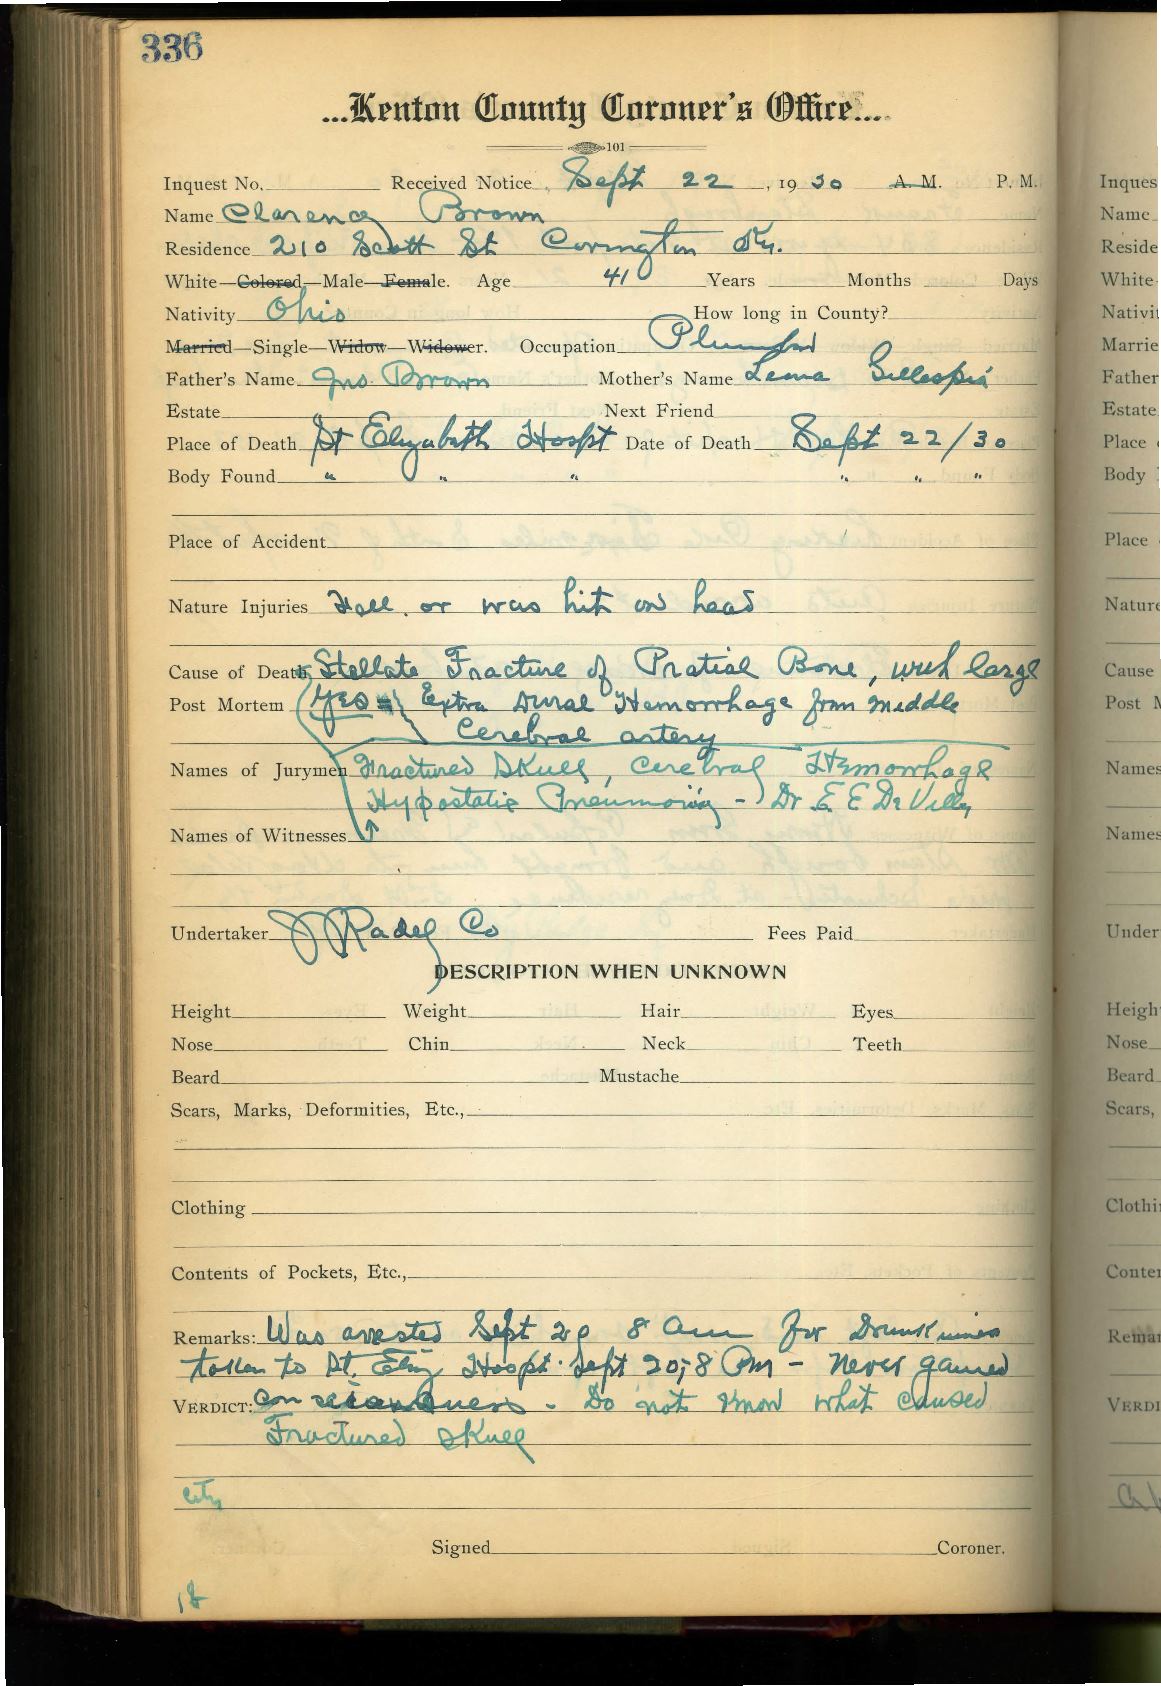 336
...Kenton County Coroner's Office...
101
Inquest No. Received Notice, Sept 22, 1930 A. M. P. M.
Name Clarence Brown
Residence 210 Scott St Covington Ky.
White—Colored—Male—Female. Age 41 Years Months Days
Nativity Ohio How long in County?
Married—Single—Widow—Widower. Occupation Plumber
Father's Name Jno. Brown Mother's Name Leona Gillespie
Estate Next Friend
Place of Death St Elizabeth Hospt Date of Death Sept 22/30
Body Found " " " " " "
Place of Accident
Nature Injuries Fell. or was hit on head
Cause of Death Stellate Fracture of Pratial Bone, with large
Post Mortem Yes = Extra Dural Hemorrhage from middle
Cerebral artery
Names of Jurymen Fractured Skull, Cerebral Hemorrhage
Hypostatic Pneumonia - Dr E E DeVilly
Names of Witnesses
Undertaker Radel Co Fees Paid
DESCRIPTION WHEN UNKNOWN
Height Weight Hair Eyes
Nose Chin Neck Teeth
Beard Mustache
Scars, Marks, Deformities, Etc.,
Clothing
Contents of Pockets, Etc.,
Remarks: Was arrested Sept 20 8 am for Drunkiness
taken to St. Eliz Hospt. Sept 20, 8 Pm - never gained
VERDICT: consciousness - Do not know what caused
Fractured Skull
City
Signed Coroner.
Inques
Name
Reside
White-
Nativit
Marrie
Father
Estate
Place
Body
Place
Nature
Cause
Post M
Names
Names
Under
Heigh
Nose
Beard
Scars,
Clothi
Conte
Remar
VERDI